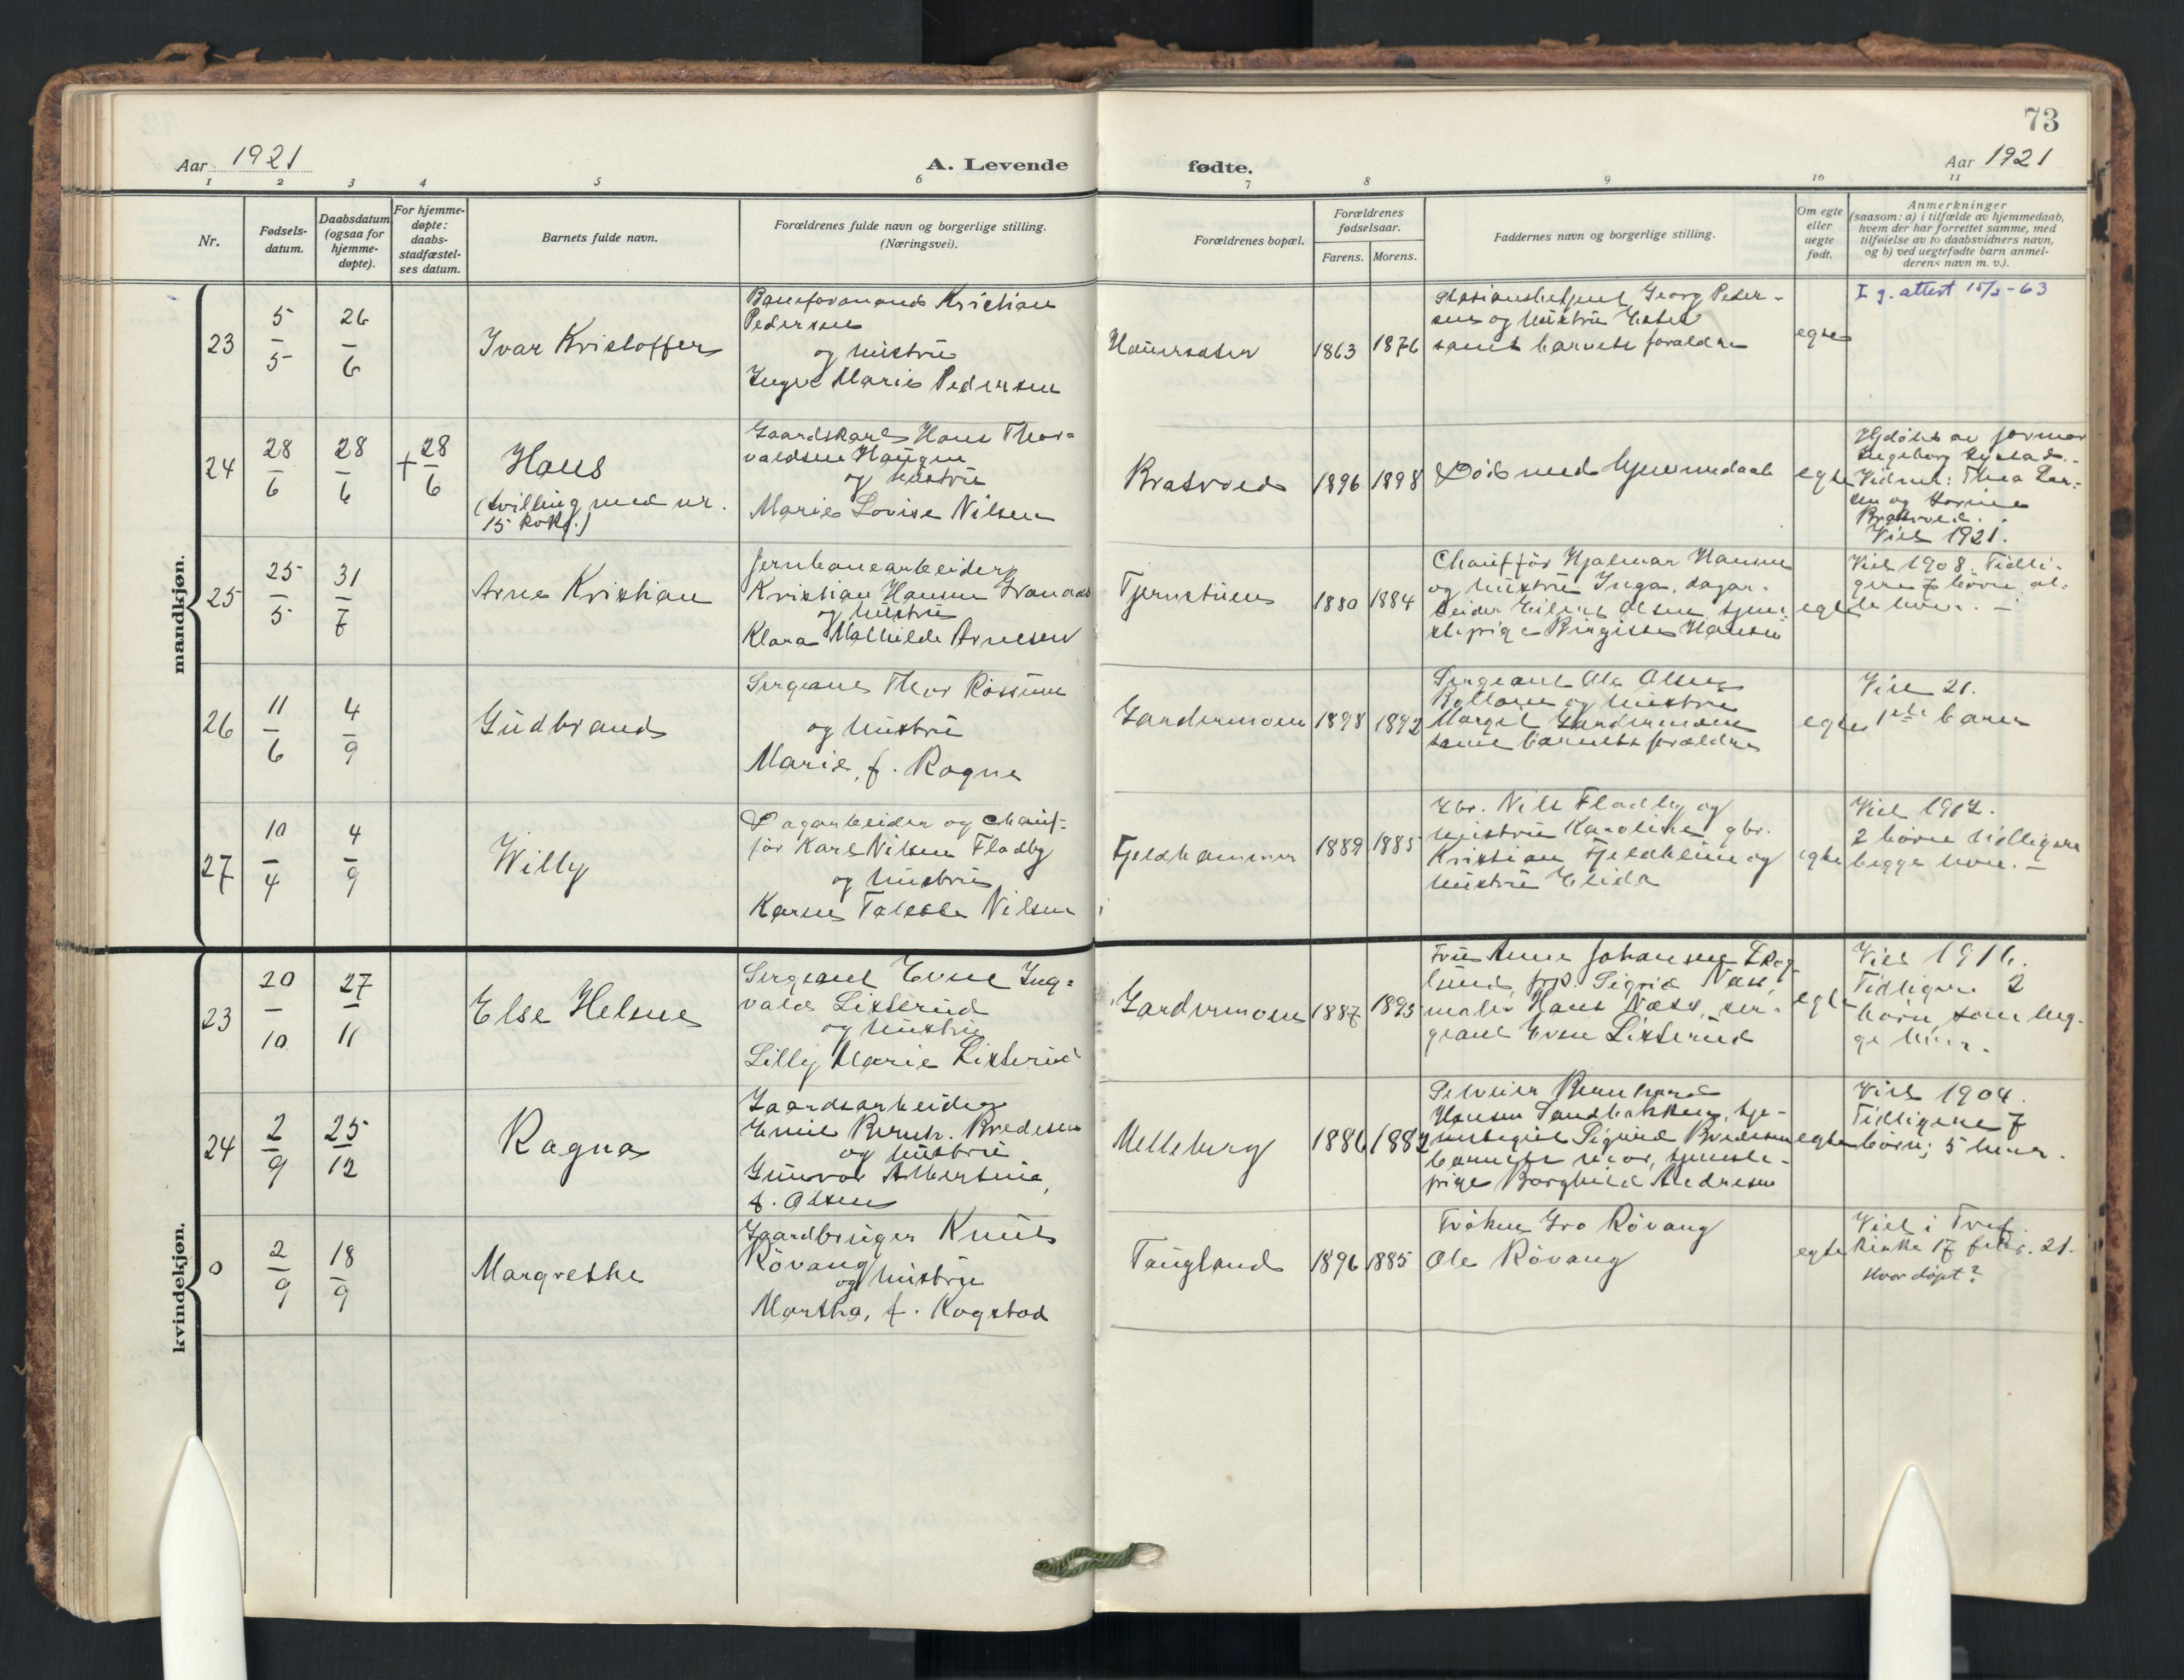 73
Aar 1921
A. Levende
fødte.
Aar 1921
1 2 3 4 5 6 7 8 9 10 11
Nr.
Fødsels-
datum.
Daabsdatum
(ogsaa for
hjemme-
døpte).
For hjemme-
døpte:
daabs-
stadfæstel-
ses datum.
Barnets fulde navn.
Forældrenes fulde navn og borgerlige stilling.
(Næringsvei).
Forældrenes bopæl.
Forældrenes
fødselsaar.
Farens. Morens.
Faddernes navn og borgerlige stilling.
Om egte
eller
uegte
født.
Anmerkninger
(saasom: a) i tilfælde av hjemmedaab,
hvem der har forrettet samme, med
tilføielse av to daabsvidners navn,
og b) ved uegtefødte barn anmel-
derens navn m. v.).
mandkjøn.
23
5/5
26/6
Ivar Kristoffer
Baneformand Kristian
Pedersen
og hustru
Inga Marie Pedersen
Hauerseter
1863
1876
Stasionsbetjent Georg Peder-
sen og hustru Ester
samt barnets forældre
egte
I g. attest 15/2-63
24
28/6
28/6
+ 28/6
Hans
(tvilling med nr.
15 kvkj.)
Gaardskarl Hans Thor-
valdsen Haugen
og hustru
Marie Lovise Nilsen
Bratvold
1896
1898
Død med hjemmedaab
egte
Hjdøbt av jormor
Ingeborg Nystad.-
Vidner: Thea Lar-
sen og
Bratvold.
Viet 1921.
25
25/5
31/7
Arne Kristian
Jernbanearbeider
Kristian Hansen
og hustru
Klara Mathilde Arnesen
Tjernstuen
1880
1884
Chauffør Hjalmar Hansen
og hustru Inga, dagar-
beider Olsen, tjene-
stepige Birgitte Hansen
egte
Viet 1908. Tidli-
gere 7 børn, al-
le lever. -
26
11/6
4/9
Gudbrand
Sergeant Thor Rossum
og hustru
Marie, f. Rogne
Gardermoen
1898
1892
Sergeant Ole Olsen
og hustru
Margit Gardermoen
samt barnets forældre
egte
Viet 21.
1ste barn
27
10/4
4/9
Willy
Dagarbeider og chauf-
før Karl Nilsen Fladby
og hustru
Karen Nilsen
Fjeldhammer
1889
1885
Gbr. Nils Fladby og
hustru Karoline, gbr.
Kristian Fjeldheim og
hustru Elida
egte
Viet 1917.
2 børn tidligere
begge lever. -
kvindekjøn.
23
20/10
27/11
Else Helene
Sergeant Even Ing-
vald Lixterud
og hustru
Lilly Marie Lixterud
Gardermoen
1887
1895
Fru Anna Johansen Skog-
lund, frk. Sigrid Næss,
maler Hans Næss, ser-
geant Even Lixterud
egte
Viet 1916.
Tidligere 2
børn, som beg-
ge lever.
24
2/9
25/12
Ragna
Gaardsarbeider
Emil Bernh. Bredesen
og hustru
Gunvor Albertine,
f. Olsen
Melleberg
1886
1882
Bernhard
Hansen Sandbakken, tje-
Sigurd Bredesen
barnets mor, tjeneste-
pige Borghild Andresen
egte
Viet 1904.
Tidligere 7
børn; 5 lever.
0
2/9
18/9
Margrethe
Gaardbruger Knut
Røvang
og hustru
Martha, f. Kogstad
Taugland
1896
1885
Frøken Gro Røvang
Ole Røvang
egte
Viet i Tref.
kirke 17 febr. 21.
Hvor døpt?